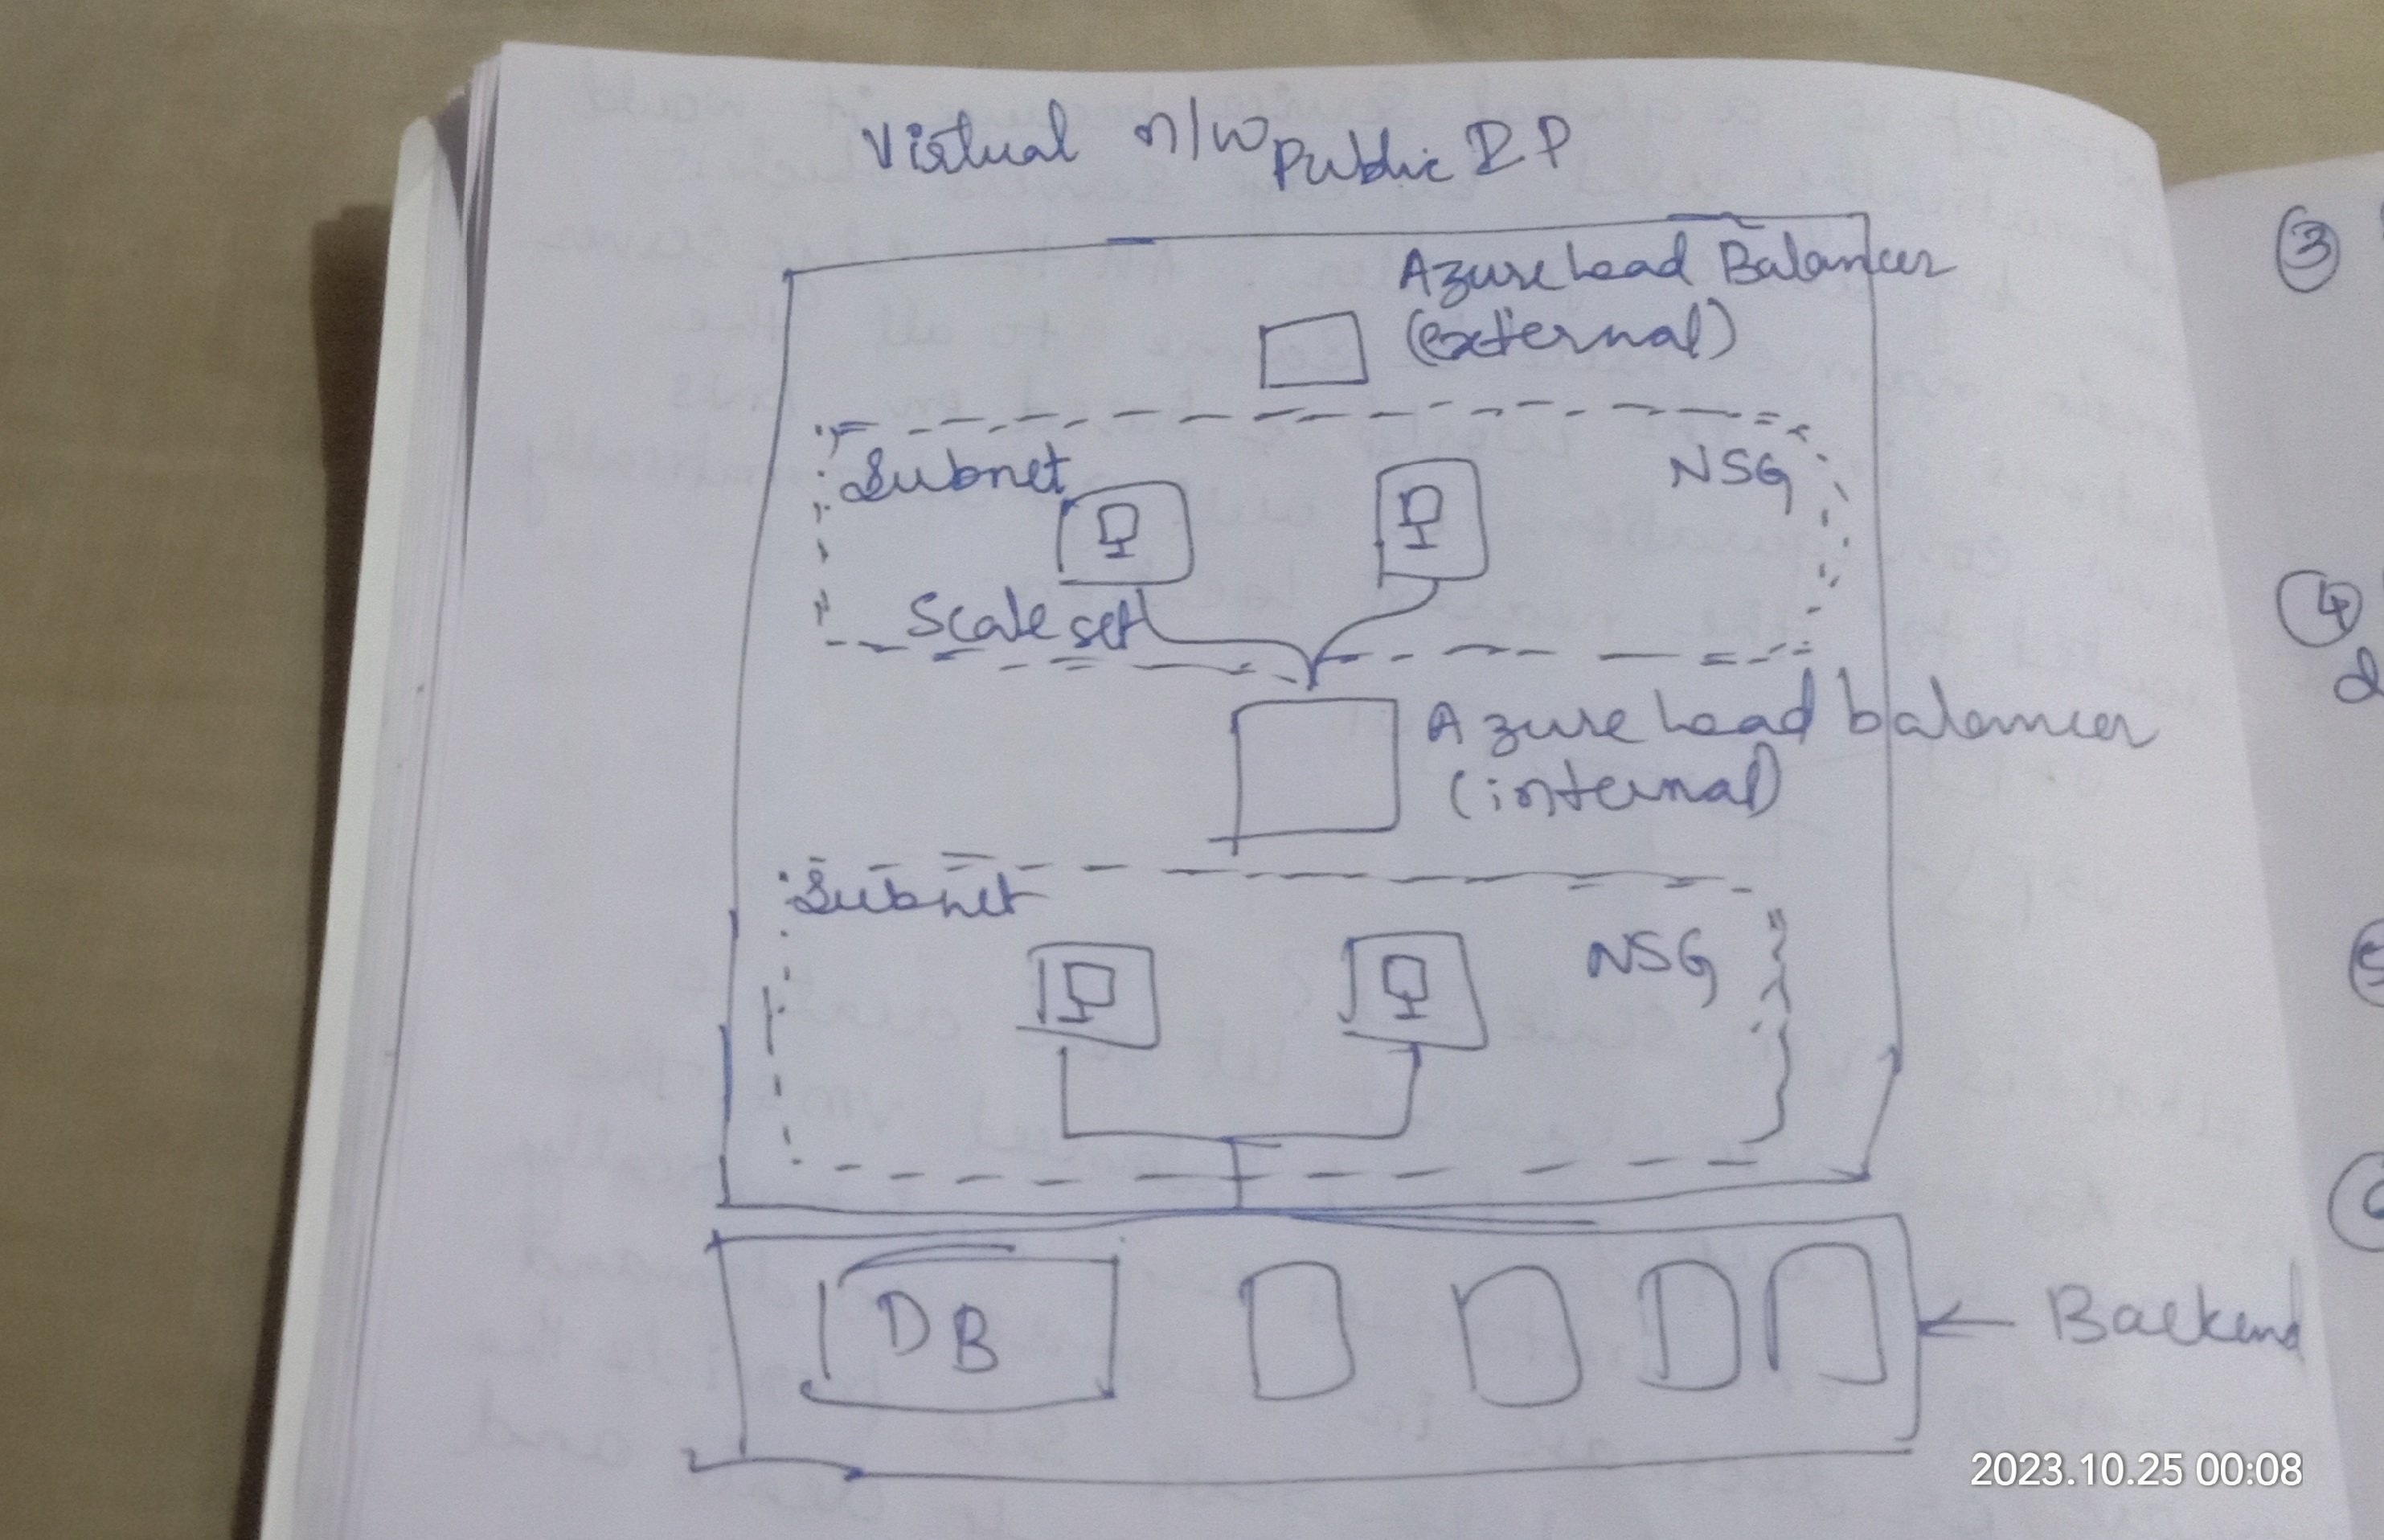 Virtual n/w Public IP
Azure Load Balancer
(external)
Subnet
NSG
Scale set
Azure Load balancer
(internal)
Subnet
NSG
DB
Backend
3
4
2023.10.25 00:08